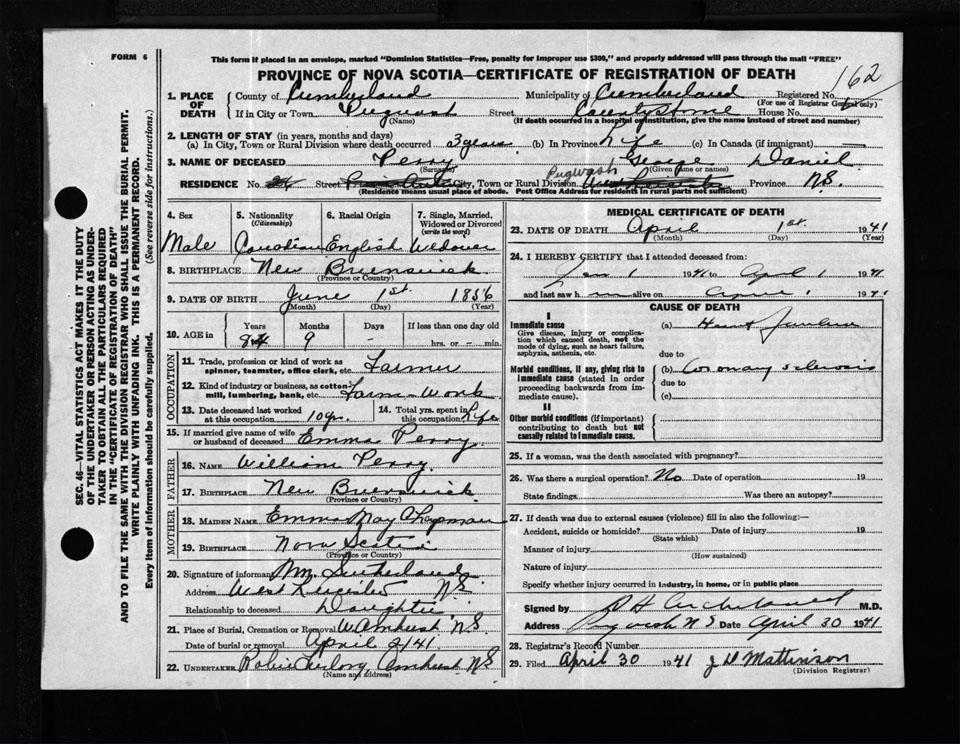 FORM 6
This form if placed in an envelope, marked "Dominion Statistics—Free, penalty for improper use $300," and properly addressed will pass through the mail "FREE"
PROVINCE OF NOVA SCOTIA—CERTIFICATE OF REGISTRATION OF DEATH
162
1. PLACE OF DEATH
County of Cumberland Municipality of Cumberland Registered No.
(For use of Registrar General only)
If in City or Town Pugwash Street House No.
(Name) (If death occurred in a hospital or institution, give the name instead of street and number)
2. LENGTH OF STAY (in years, months and days)
(a) In City, Town or Rural Division where death occurred 3 years (b) In Province Life (c) In Canada (if immigrant) —
3. NAME OF DECEASED Perry George Daniel
(Surname) (Given name or names)
Pugwash
RESIDENCE No. Street City, Town or Rural Division Province N.S.
(Residence means usual place of abode. Post Office Address for residents in rural parts not sufficient)
4. Sex Male
5. Nationality (Citizenship) Canadian
6. Racial Origin English
7. Single, Married, Widowed or Divorced (write the word) Widower
8. BIRTHPLACE New Brunswick
(Province or Country)
9. DATE OF BIRTH June 1st 1856
(Month) (Day) (Year)
10. AGE in Years 84 Months 9 Days - If less than one day old hrs. or - min.
OCCUPATION
11. Trade, profession or kind of work as spinner, teamster, office clerk, etc. Farmer
12. Kind of industry or business, as cotton-mill, lumbering, bank, etc. Farm Work
13. Date deceased last worked at this occupation 10 yr.
14. Total yrs. spent in this occupation Life
15. If married give name of wife or husband of deceased Emma Perry
FATHER
16. NAME William Perry
17. BIRTHPLACE New Brunswick
(Province or Country)
MOTHER
18. MAIDEN NAME Emma May Chapman
19. BIRTHPLACE Nova Scotia
(Province or Country)
20. Signature of informant Sutherland
Address West N.S.
Relationship to deceased Daughter
21. Place of Burial, Cremation or Removal W. Amherst N.S.
Date of burial or removal April 41
22. UNDERTAKER Amherst N.S
(Name and address)
MEDICAL CERTIFICATE OF DEATH
23. DATE OF DEATH April 1st. 1941
(Month) (Day) (Year)
24. I HEREBY CERTIFY that I attended deceased from:
Jan 1 1941 to April 1 1941
and last saw him alive on April 1 1941
CAUSE OF DEATH
I
Immediate cause
Give disease, injury or complication which caused death, not the mode of dying, such as heart failure, asphyxia, asthenia, etc.
(a) Heart Failure
due to
Morbid conditions, if any, giving rise to immediate cause (stated in order proceeding backwards from immediate cause).
(b) Coronary sclerosis
due to
(c)
II
Other morbid conditions (if important) contributing to death but not causally related to immediate cause.
25. If a woman, was the death associated with pregnancy?
26. Was there a surgical operation? No Date of operation 19
State findings Was there an autopsy?
27. If death was due to external causes (violence) fill in also the following:—
Accident, suicide or homicide? Date of injury 19
(State which)
Manner of injury
(How sustained)
Nature of injury
Specify whether injury occurred in industry, in home, or in public place
Signed by M.D.
Address Pugwash N S Date April 30 1941
28. Registrar's Record Number
29. Filed April 30 1941 Mattinson
(Division Registrar)
SEC. 46—VITAL STATISTICS ACT MAKES IT THE DUTY
OF THE UNDERTAKER OR PERSON ACTING AS UNDERTAKER
TO OBTAIN ALL THE PARTICULARS REQUIRED
IN THE "CERTIFICATE OF REGISTRATION OF DEATH"
AND TO FILE THE SAME WITH THE DIVISION REGISTRAR WHO SHALL ISSUE THE BURIAL PERMIT.
WRITE PLAINLY WITH UNFADING INK. THIS IS A PERMANENT RECORD.
Every item of information should be carefully supplied. (See reverse side for instructions.)